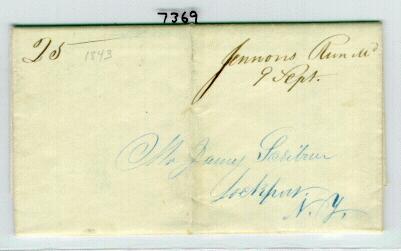 7369
25
1843
Jennons Run Md
9 Sept.
Mr James Scribner
Lockport.
N. Y.